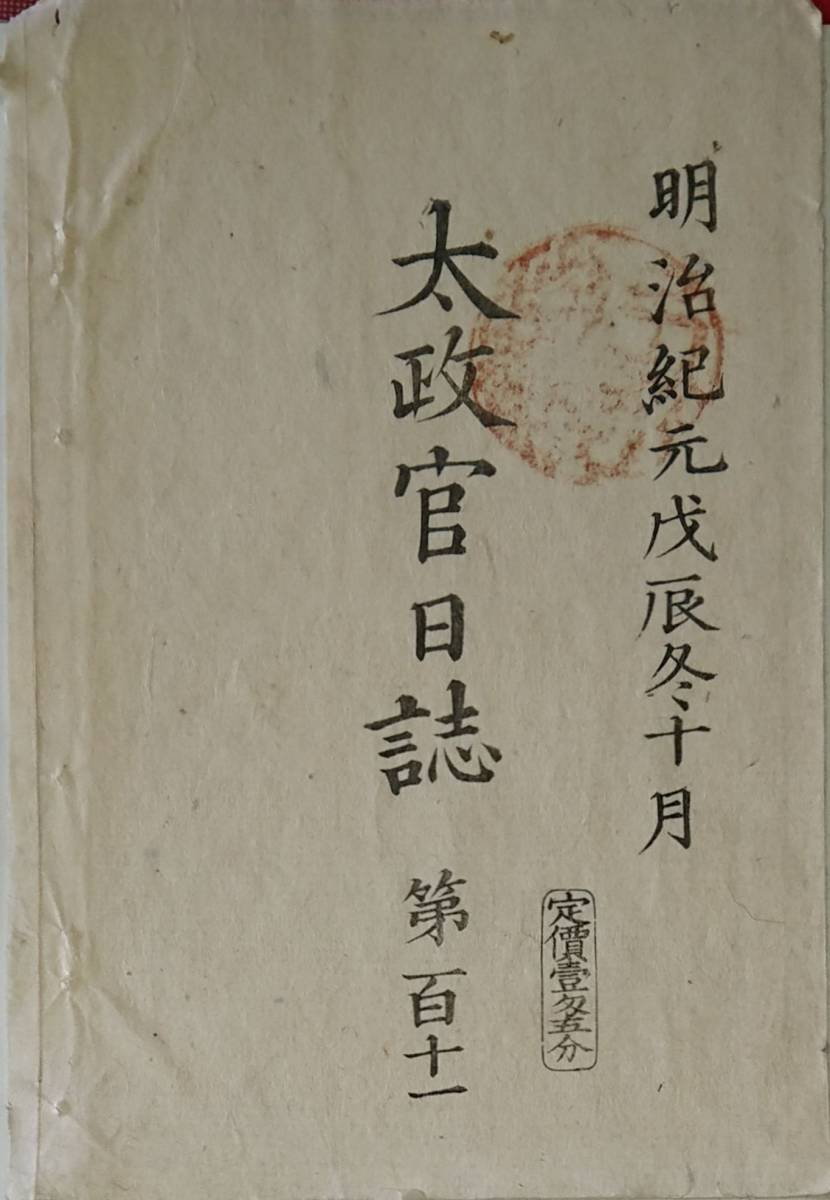 明治紀元戊辰冬十月
太政官日誌 第百十一
定價壹匁五分